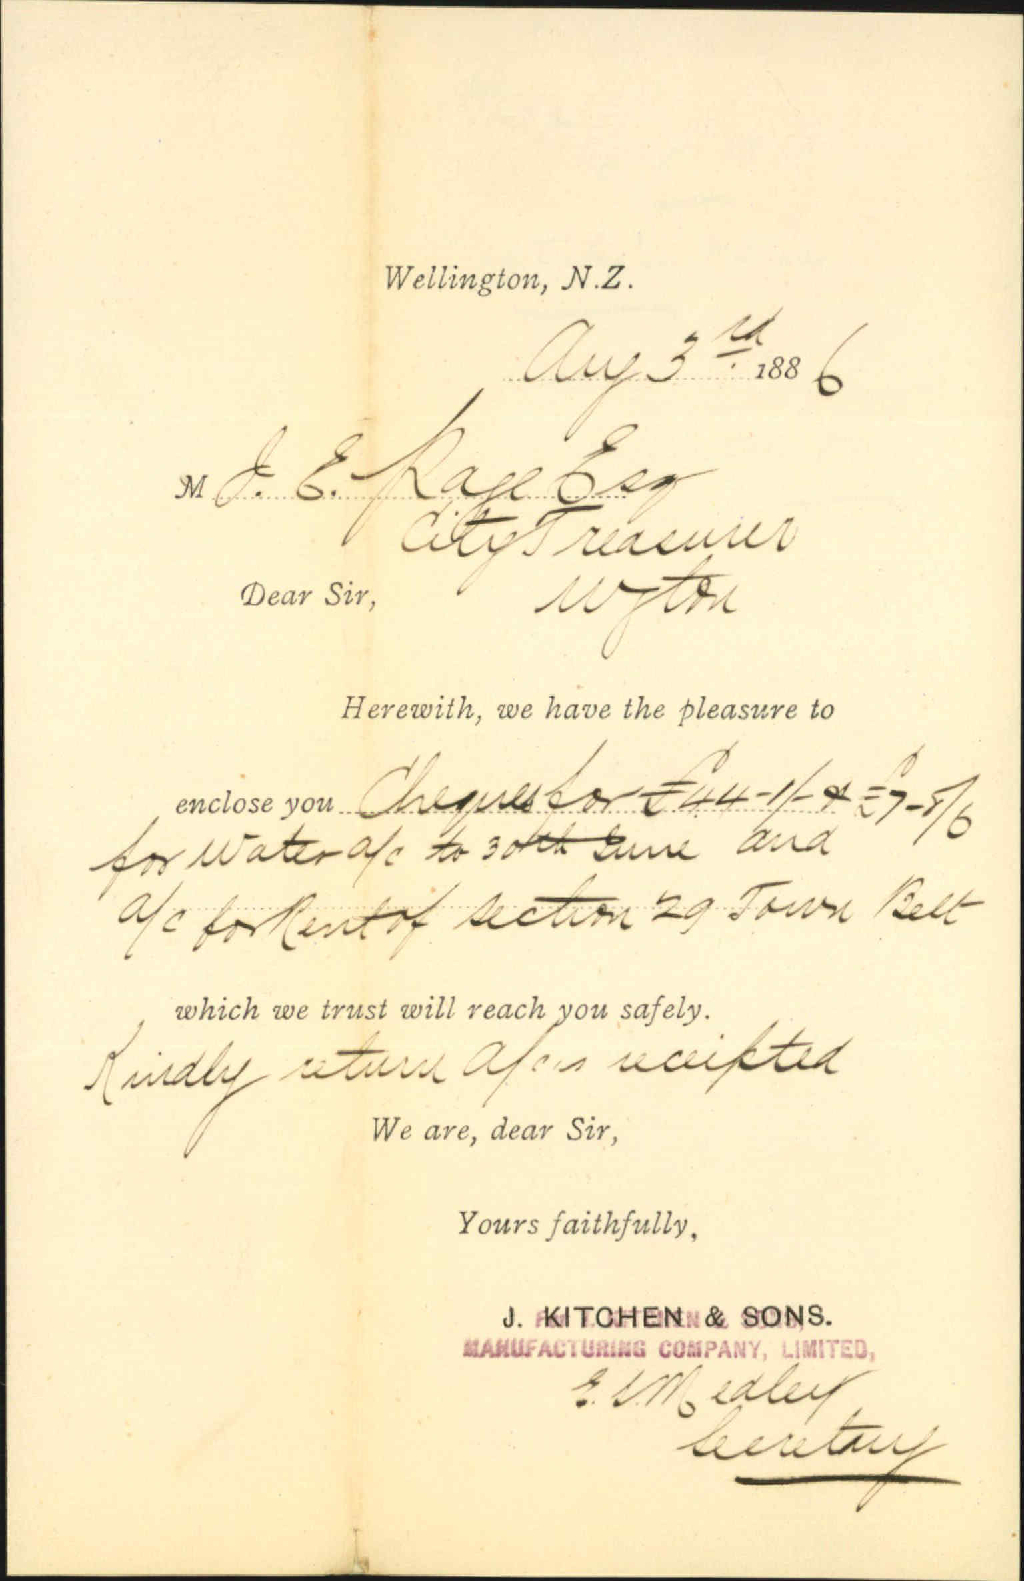 Wellington, N.Z.
Aug 3rd 1886
M J. E. Page Esq
City Treasurer
Wgton
Dear Sir,
Herewith, we have the pleasure to
enclose you Cheques for £44-1/- & £7-8/6
for Water a/c to 30th June and
a/c for Rent of Section 29 Town Belt
which we trust will reach you safely.
Kindly return a/cs receipted
We are, dear Sir,
Yours faithfully,
J. KITCHEN & SONS.
For J. KITCHEN & SONS,
MANUFACTURING COMPANY, LIMITED,
E. S. Medley
Secretary